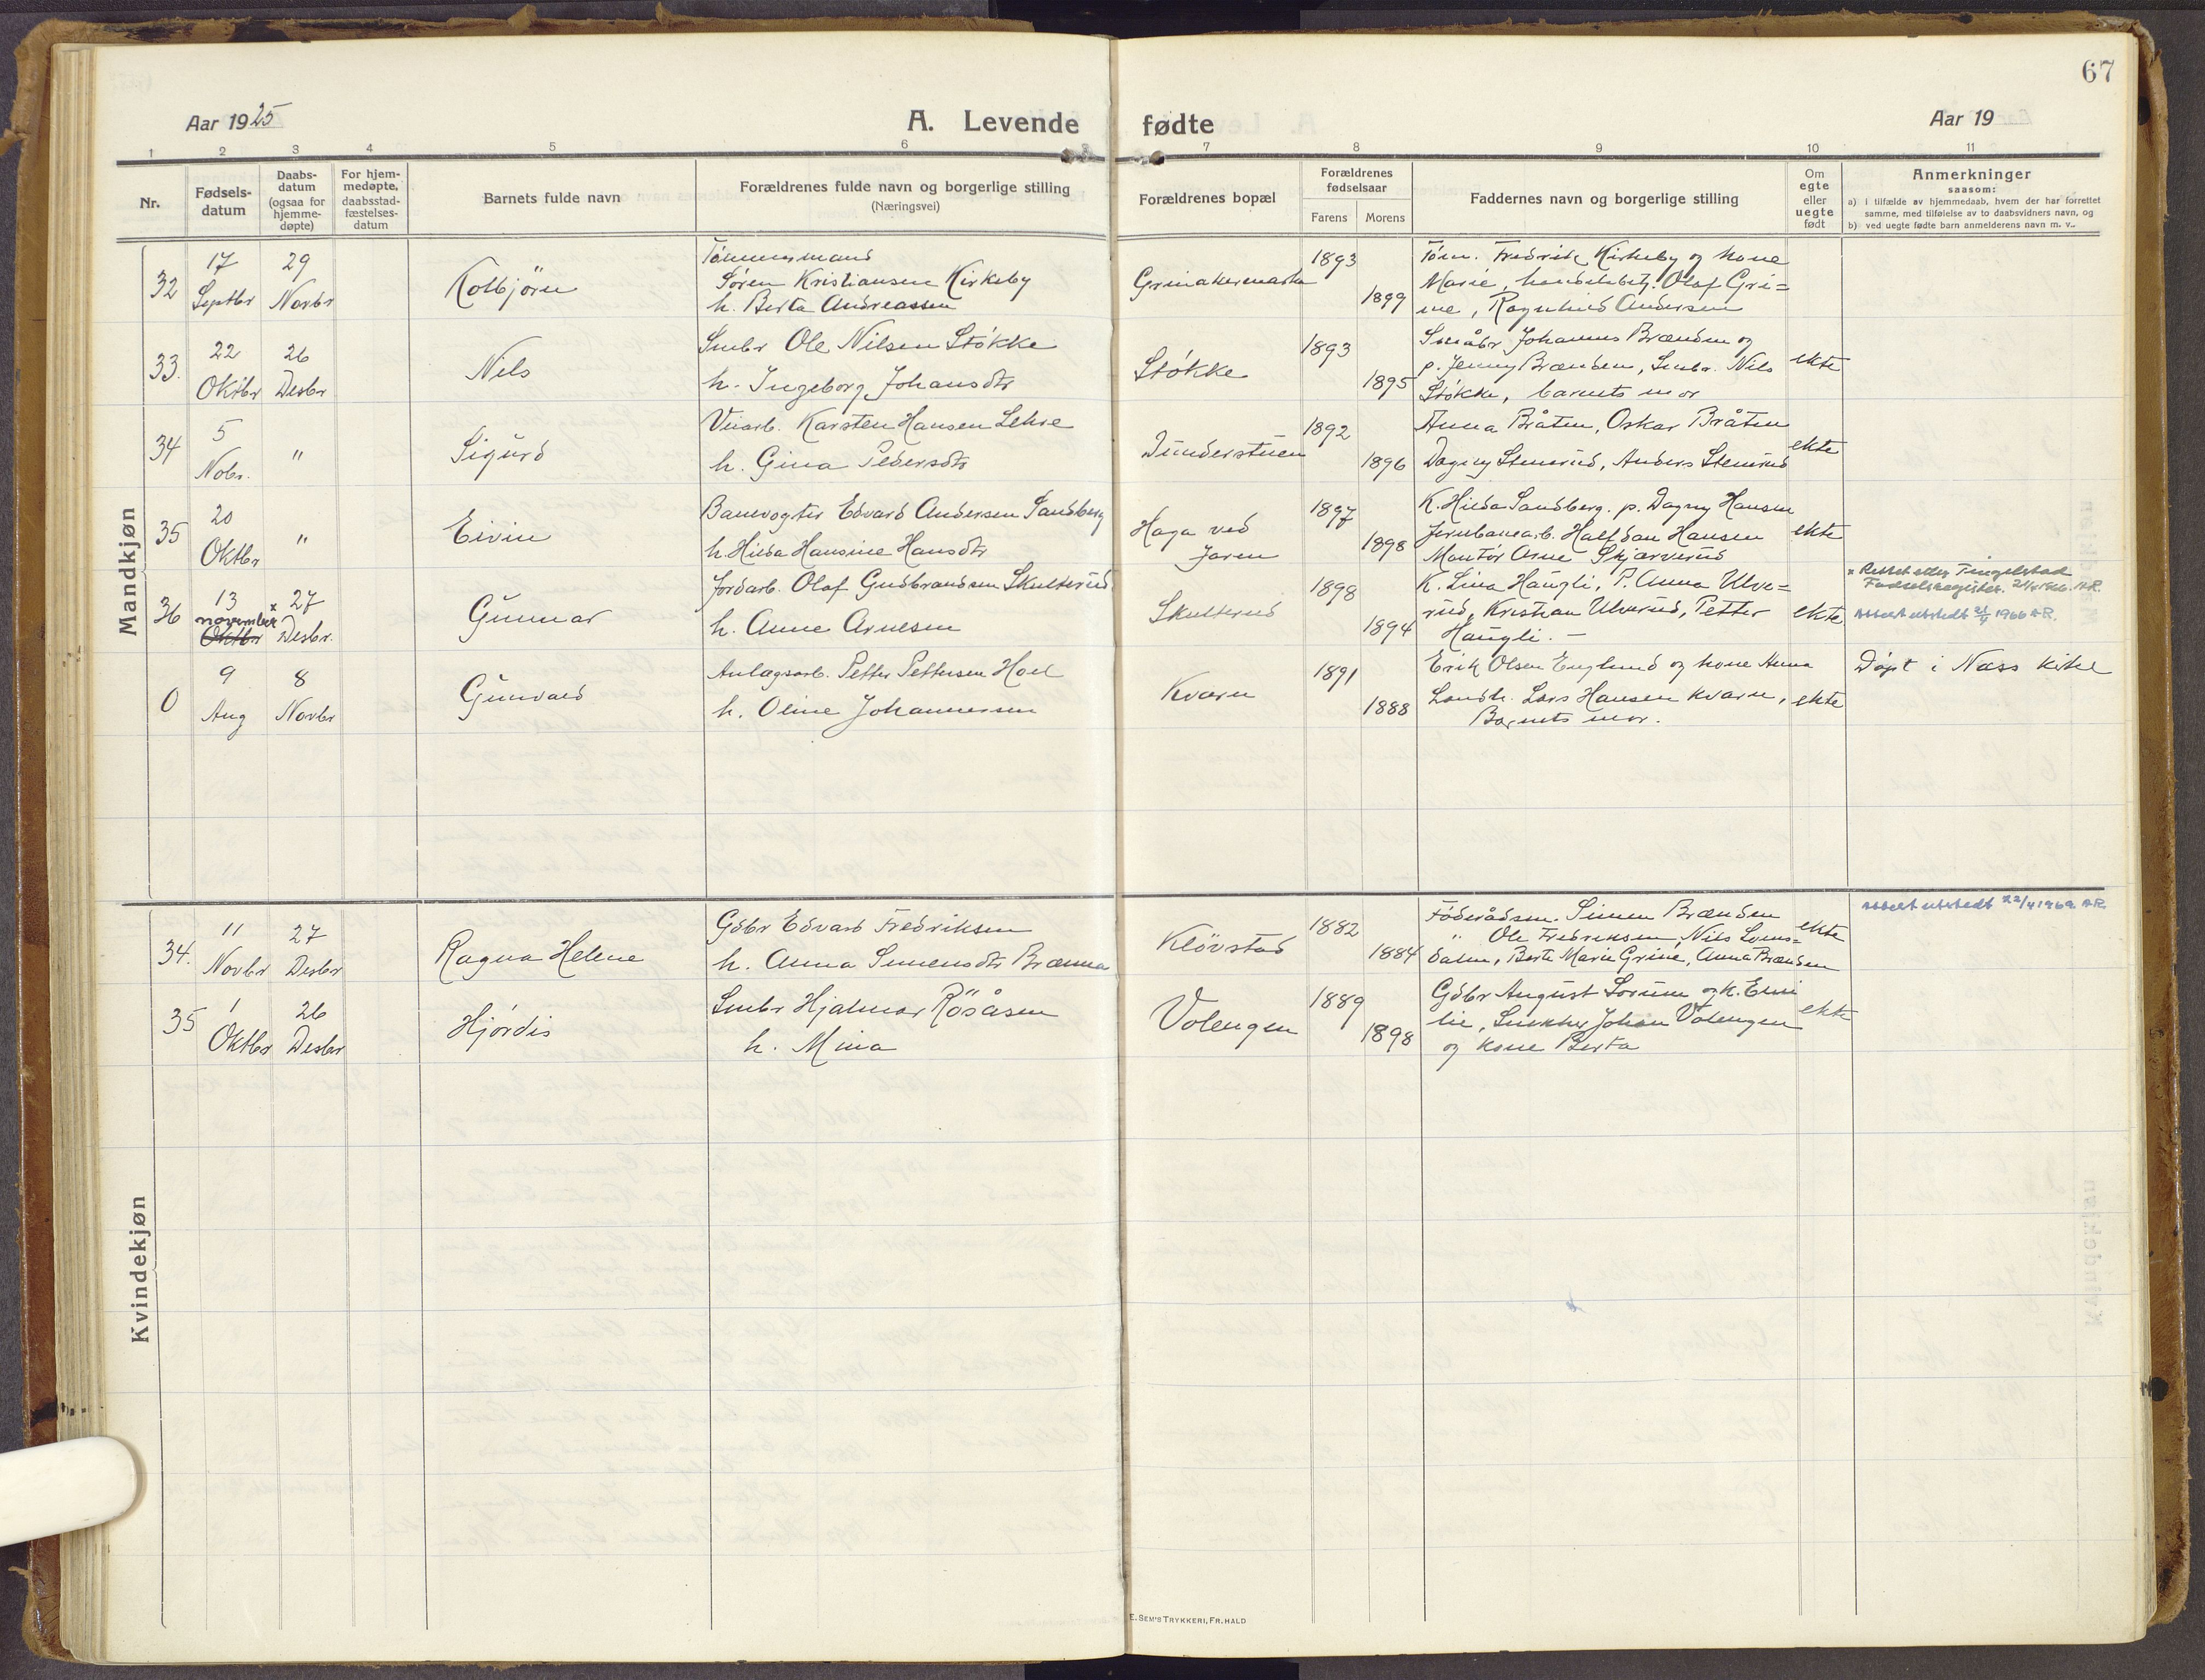 67
Aar 1925
A. Levende fødte
Aar 19
1 2 3 4 5 6 7 8 9 10 11
Nr.
Fødsels-
datum
Daabs-
datum
(ogsaa for
hjemme-
døpte)
For hjem-
medøpte,
daabsstad-
fæstelses-
datum
Barnets fulde navn
Forældrenes fulde navn og borgerlige stilling
(Næringsvei)
Forældrenes bopæl
Forældrenes
fødselsaar
Farens Morens
Faddernes navn og borgerlige stilling
Om
egte
eller
uegte
født
Anmerkninger
saasom:
a) i tilfælde av hjemmedaab, hvem der har forrettet
samme, med tilføielse av to daabsvidners navn, og
b) ved uegte fødte barn anmelderens navn m. v..
Mandkjøn
32
17
Septbr
29
Novbr
Kolbjörn
Tømmermand
Søren Kristiansen Kirkeby
h. Berta Andreassen
Grinakermarka
1893
1899
Tøm. Fredrik Kirkeby og kone
Marie, handelsbetj. Olaf Gri=
ne, Ragnhild Andersen
33.
22
Oktbr
26
Desbr
Nils
Smbr Ole Nilsen Støkke
h. Ingeborg Johansdtr
Støkke
1893
1895
Småbr Johannes Brænden og
p. Jenny Brænden, Smbr. Nils
Støkke, barnets mor
ekte
34
5
Nobr.
"
Sigurd
Veiarb. Karsten Hansen Lehre
h. Gina Pedersdtr
Dunderstuen
1892
1896
Anna Bråten, Oskar Bråten
Dagny Stenerud, Anders Stenerud
ekte
35
20
Oktbr
"
Eivin
Banevogter Edvard Andersen Sandberg
h. Hilda Hansine Hansdtr
Haga ved
Jaren
1897
1898
K. Hilda Sandberg. p. Dagny Hansen
Jernbanearb. Halfdan Hansen
Montør Arne Skjærverud
ekte
36
13
november
Oktbr
x 27
Desbr.
Gunnar
Jordarb. Olaf Gudbrandsen Skulterud
h. Anne Arnesen
Skulterud
1898
1894
K. Lina Haugli, P. Anna Ulve=
rud, Kristian Ulverud, Petter
Haugli. –
ekte
x Rettet etter Tingelstad
Fødselsregister. 21/4 1966. A.R.
Attest utstedt 21/4 1966 A.R.
0
9
Aug
8
Novbr
Gunvald
Anlagsarb. Petter Pettersen Hoel
h. Oline Johannessen
Kvarn
1891
1888
Erik Olsen Englund og kone Anna
Landh. Lars Hansen Kvarn,
Barnets mor.
ekte
Døpt i Næss kirke
Kvindekjøn
34.
11
Novbr
27
Desbr
Ragna Helene
Gdbr Edvard Fredriksen
h. Anna Simensdtr Brænna
Kløvstad
1882
1884
Föderådsm. Simen Brænden
" Ole Fredriksen, Nils Svens=
dalen, Berte Marie Grine, Anna Brænden
ekte
Attest utstedt 22/4 1969 A.R.
35
1
Oktbr
26
Desbr
Hjørdis
Smbr Hjalmar Røsåsen
h. Mina
Volengen
1889
1898
Gdbr August Sorum og k. Emi
lie, Johan Volengen
og kone Berta
ekte
E. SEM'S TRYKKERI, FR.HALD